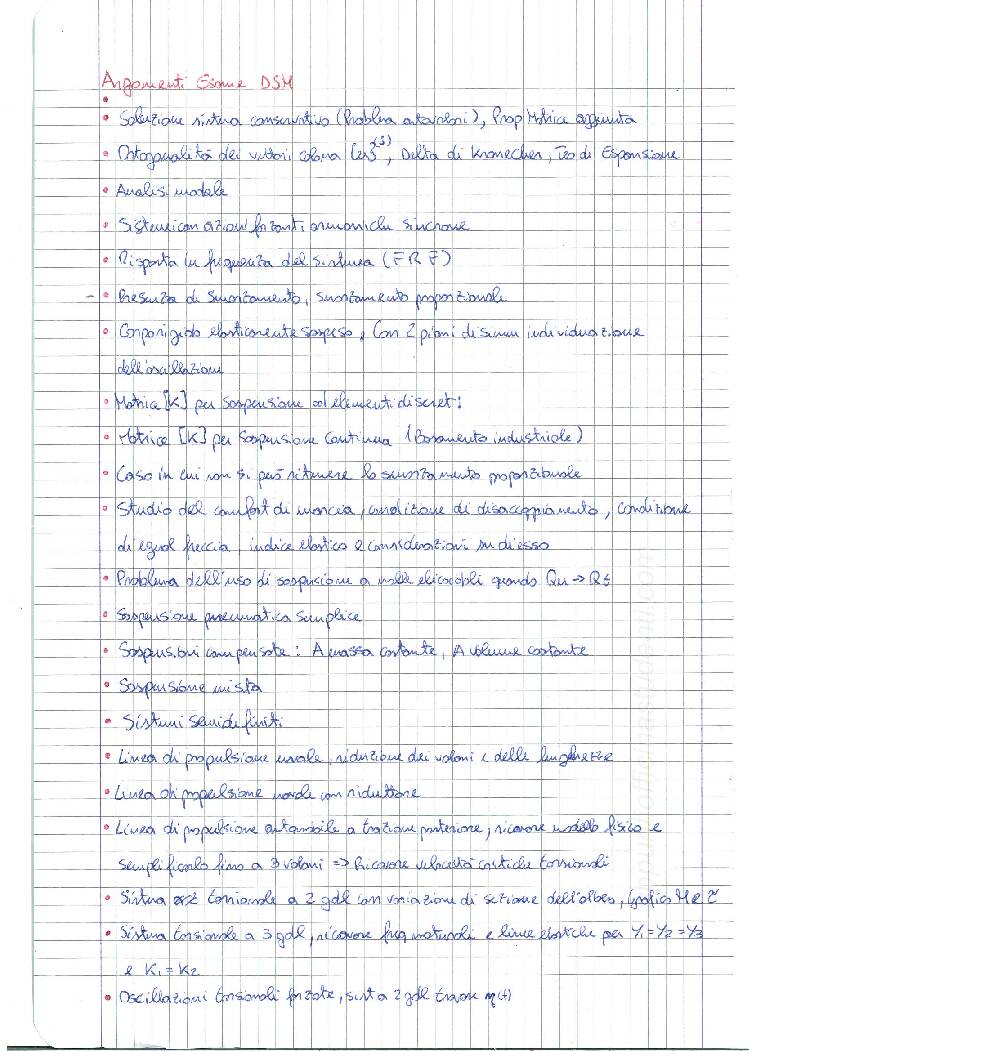 Argomenti Esame DSM
• Soluzione sistema conservativo (Problema autovalori), Prop Matrice aggiunta
• Ortogonalità dei vettori colonna, Delta di Kronecher, Teo di Espansione
• Analisi modale
• Sistemi con azioni forzanti armoniche sincrone
• Risposta in frequenza del sistema (FRF)
– • Presenza di smorzamento, smorzamento proporzionale
• Corpo rigido elasticamente sospeso, Con 2 piani di simm individuazione
dell'oscillazioni
• Matrice [K] per sospensione ad elementi discreti
• Matrice [K] per sospensione continua (Basamento industriale)
• Caso in cui non si può ritenere lo smorzamento proporzionale
• Studio del comfort di marcia, condizione di disaccoppiamento, condizione
di egual freccia, indice elastico e considerazioni su di esso
• Problema dell'uso di sospensione a molle elicoidali quando Qu → Qt
• Sospensione pneumatica semplice
• Sospensioni compensate: A massa costante, A volume costante
• Sospensione mista
• Sistemi semidefiniti
• Linea di propulsione navale, riduzione dei volani e delle lunghezze
• Linea di propulsione navale con riduttore
• Linea di propulsione automobile a trazione posteriore, ricavare modello fisico e
semplificarlo fino a 3 volani => Ricavare velocità critiche torsionali
• Sistema torsionale a 2 gdl con variazione di sezione dell'albero, Grafico M e τ
• Sistema torsionale a 3 gdl, ricavare freq naturali e linee elastiche per Y1 = Y2 = Y3
e K1 = K2
• Oscillazioni torsionali forzate, sist a 2 gdl trovare η(t)